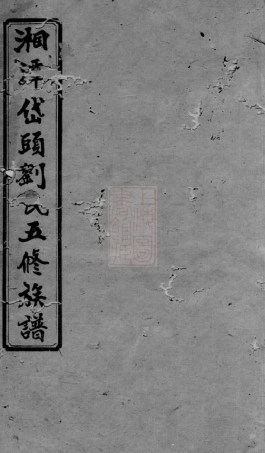 湘潭岱頭劉氏五修族譜